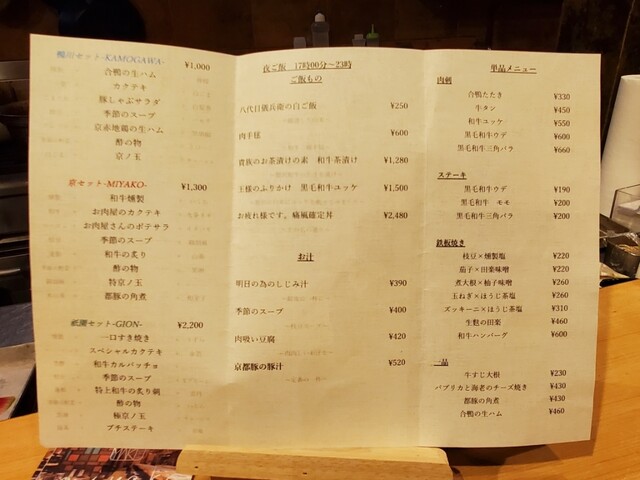 鴨川セット-KAMOGAWA- ¥1,000
合鴨の生ハム
カクテキ
豚しゃぶサラダ
季節のスープ
京赤地鶏の生ハム
酢の物
京ノ玉
京セット-MIYAKO- ¥1,300
和牛燻製
お肉屋のカクテキ
お肉屋さんのポテサラ
季節のスープ
和牛の炙り
酢の物
特京ノ玉
都豚の角煮
祇園セット-GION- ¥2,200
一口すき焼き
スペシャルカクテキ
和牛カルパッチョ
季節のスープ
特上和牛の炙り刺
酢の物
極京ノ玉
プチステーキ
夜ご飯 17時00分～23時
ご飯もの
八代目儀兵衛の白ご飯 ¥250
肉手毬 ¥600
貴族のお茶漬けの素 和牛茶漬け ¥1,280
王様のふりかけ 黒毛和牛ユッケ ¥1,500
お疲れ様です。痛風確定丼 ¥2,480
お汁
明日の為のしじみ汁 ¥390
季節のスープ ¥400
肉吸い豆腐 ¥420
京都豚の豚汁 ¥520
単品メニュー
肉刺
合鴨たたき ¥330
牛タン ¥450
和牛ユッケ ¥550
黒毛和牛ウデ ¥600
黒毛和牛三角バラ ¥660
ステーキ
黒毛和牛ウデ ¥190
黒毛和牛 モモ ¥200
黒毛和牛三角バラ ¥200
鉄板焼き
枝豆×燻製塩 ¥220
茄子×田楽味噌 ¥220
煮大根×柚子味噌 ¥260
玉ねぎ×ほうじ茶塩 ¥260
ズッキーニ×ほうじ茶塩 ¥310
生麩の田楽 ¥460
和牛ハンバーグ ¥600
一品
牛すじ大根 ¥230
パプリカと海老のチーズ焼き ¥430
都豚の角煮 ¥430
合鴨の生ハム ¥460